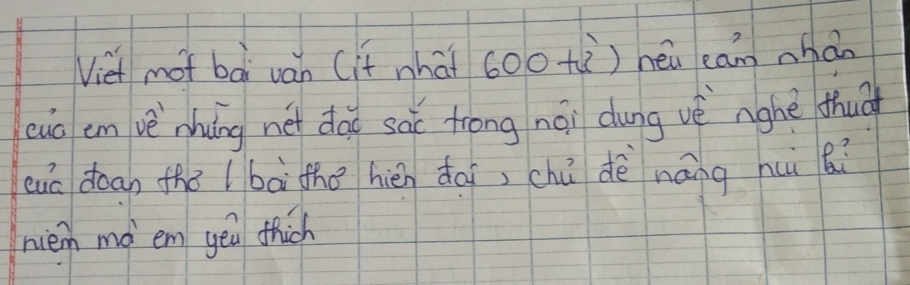 Viết một bài văn (ít nhất 600 từ) nêu cảm nhận
của em về những nét đặc sắc trong nội dung về nghệ thuật
của đoạn thơ / bài thơ hiện đại, chủ đề nâng niu kỉ
niệm mà em yêu thích